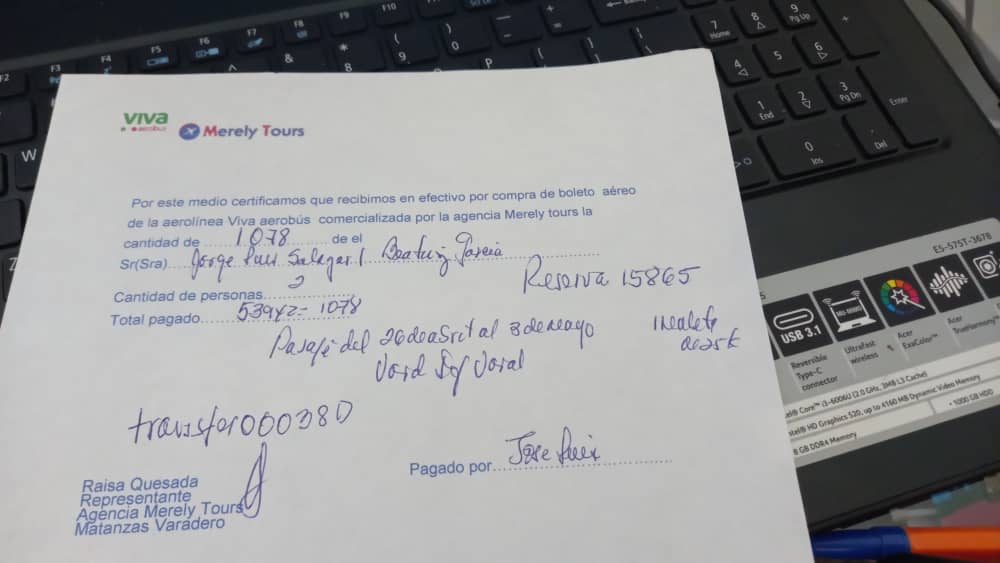 viva
aerobus
Merely Tours
Por este medio certificamos que recibimos en efectivo por compra de boleto aéreo
de la aerolínea Viva aerobús comercializada por la agencia Merely tours la
cantidad de ...... 1.078 ............ de el
Sr(Sra).... Jorge Luis Salazar / Beatriz Garcia
Reserva 15865
Cantidad de personas...... 2 ............
Total pagado........ 539x2= 1078
Pasaje del 26 de al 3 de mayo
1 maleta
de 25k
transfer 000380
Pagado por......... Jose Luis ..................
Raisa Quesada
Representante
Agencia Merely Tours
Matanzas Varadero
F2
F3
F4
F5
F6
F7
F8
F9
F10
F11
&
*
8
(
9
)
0
P
W
Z
7
Home
8
9
Pg Up
+
4
5
6
1
End
2
3
Pg Dn
Enter
0
Ins
.
Del
E5-575T-3678
USB 3.1
Reversible
Type-C
connector
Ultrafast
wireless
Acer
ExaColor™
Acer
TrueHarmony™
Intel® Core™ i3-6006U (2.0 GHz, 3MB L3 Cache)
Intel® HD Graphics 520, up to 4160 MB Dynamic Video Memory
8 GB DDR4 Memory
• 1000 GB HDD